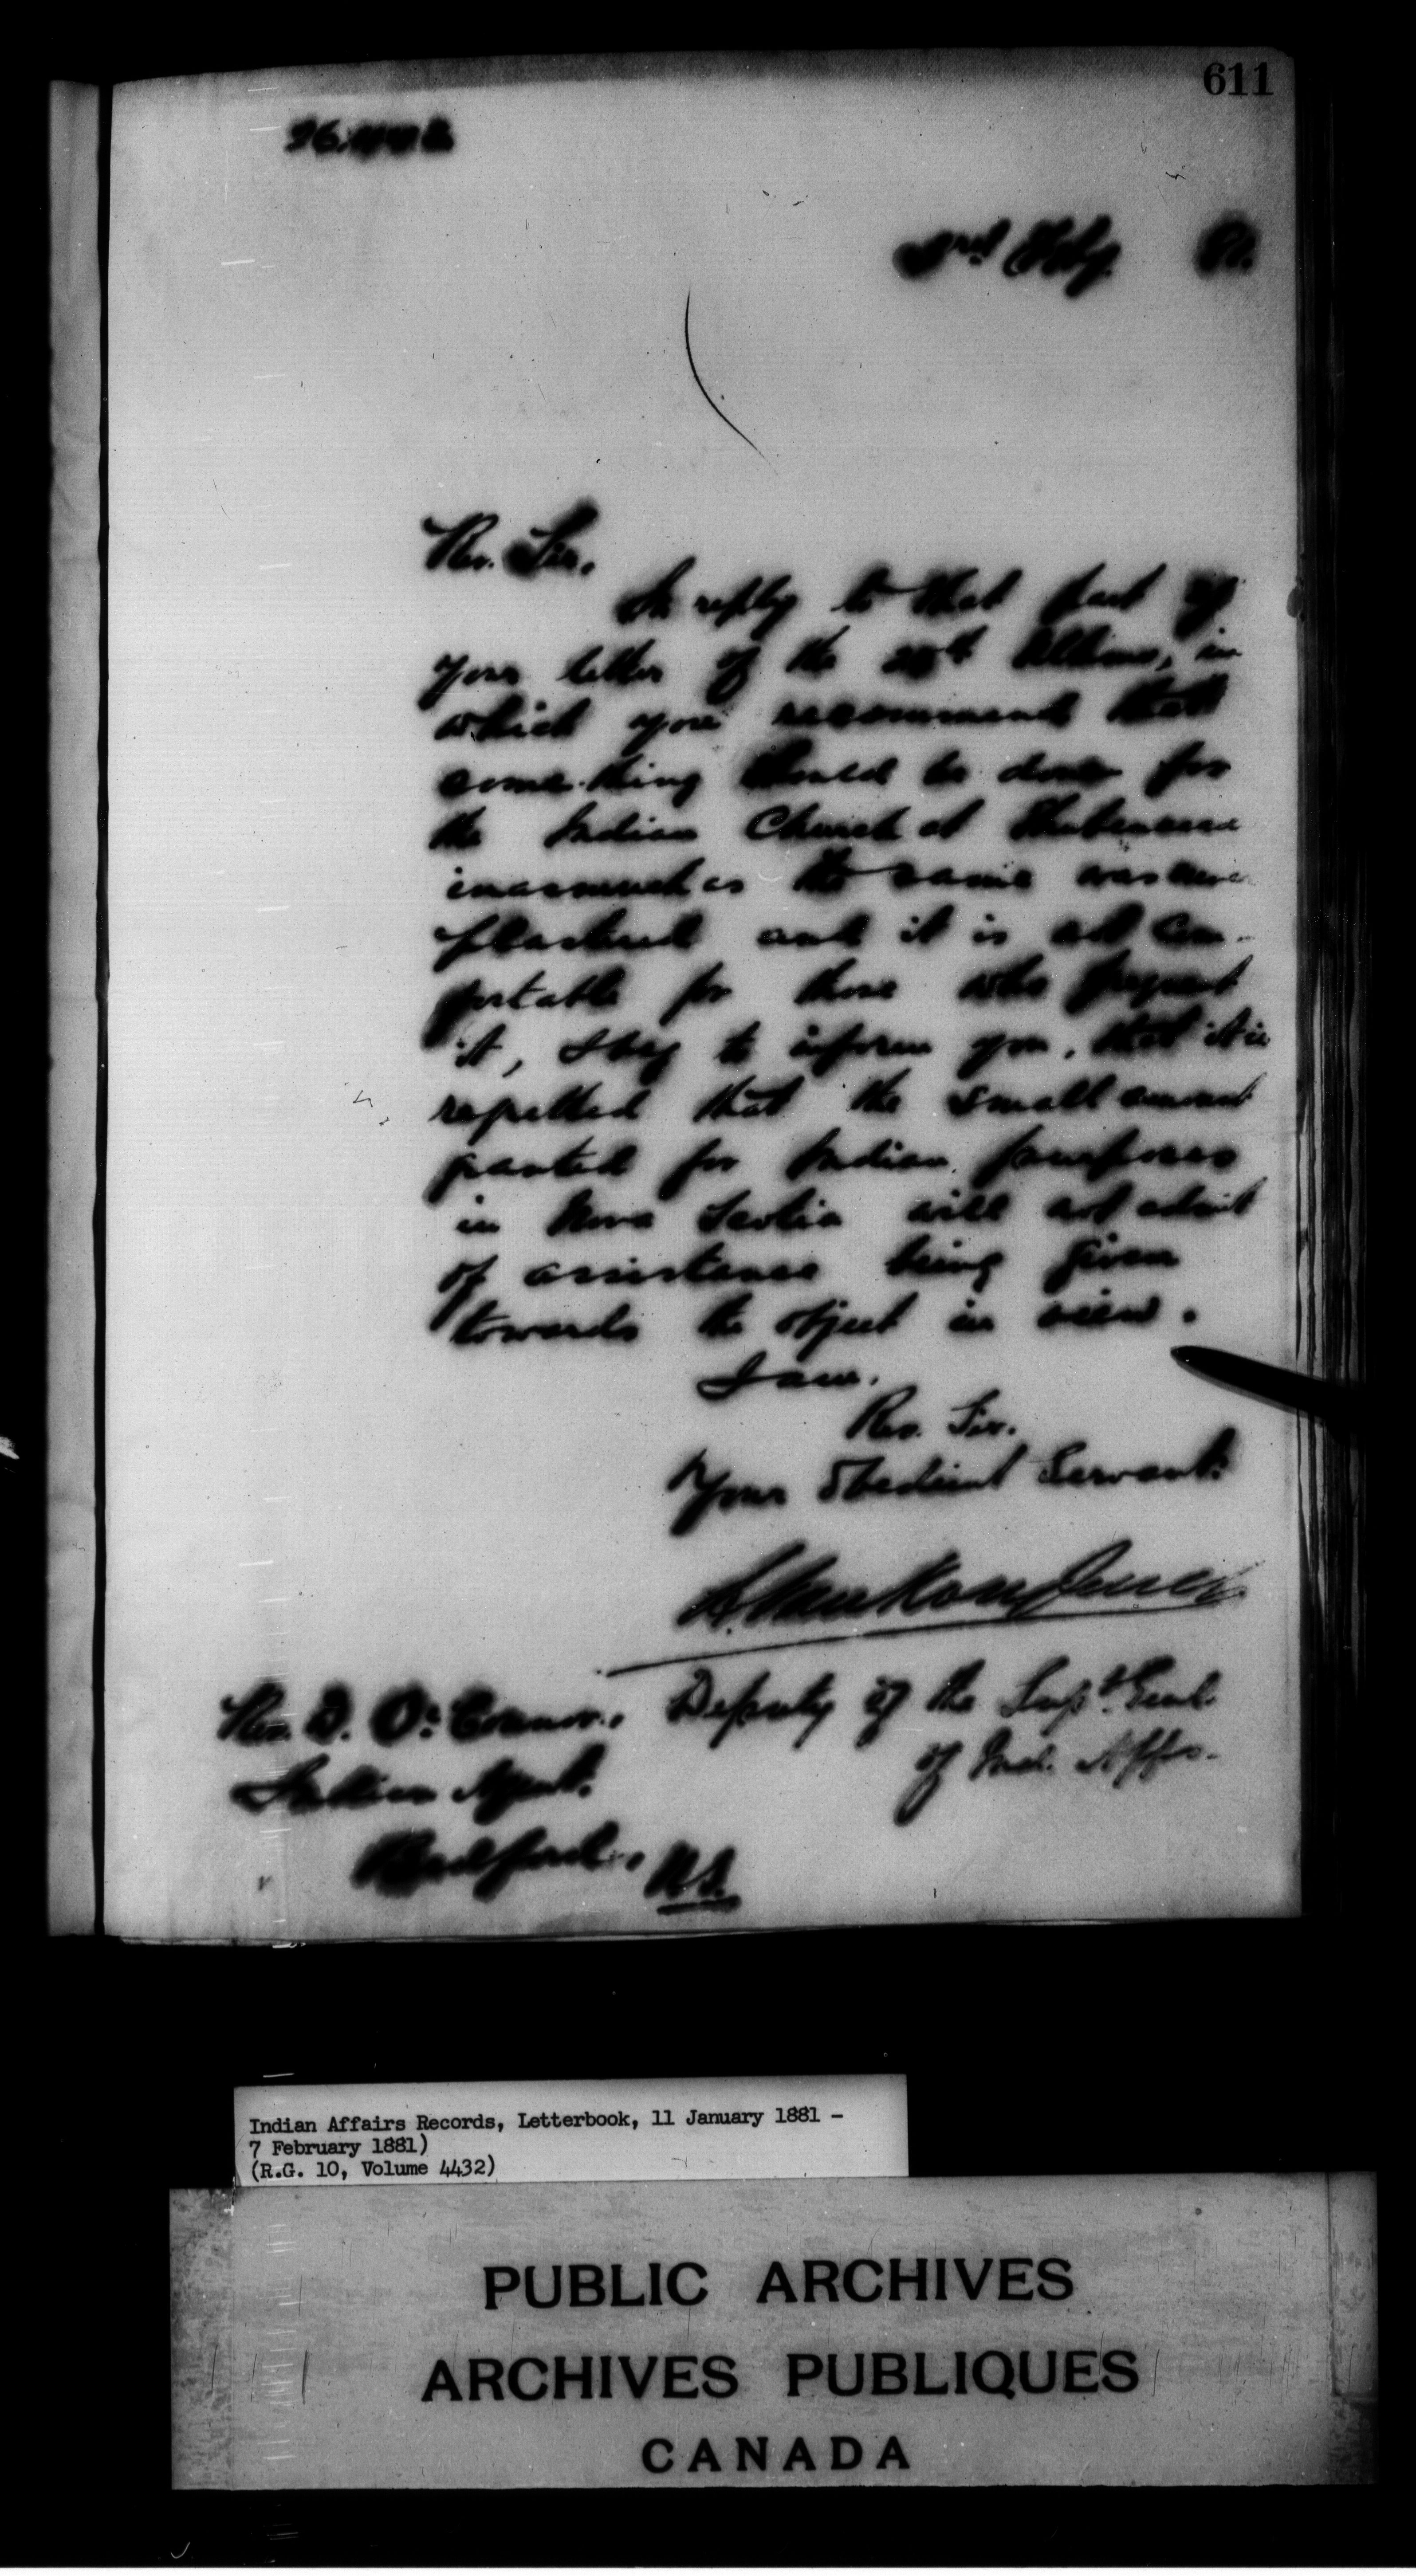 611
3rd Feby. 81.
Rev. Sir.
In reply to that part of
your letter of the Ultimo, in
which you recommend that
some-thing should be done for
the Indian Church at Shubenacadie
inasmuch as the same was never
plastered and it is not com-
fortable for those who frequent
it, I beg to inform you, that it is
regretted that the small amount
granted for Indian purposes
in Nova Scotia will not admit
of assistance being given
towards the object in view.
I am.
Rev. Sir.
Your Obedient Servant.
L. VanKoughnet
Deputy of the Supt. Genl.
of Ind. Affrs.
Rev. D. O'Connor,
Indian Agent.
Bedford, N.S.
Indian Affairs Records, Letterbook, 11 January 1881 -
7 February 1881)
(R.G. 10, Volume 4432)
PUBLIC ARCHIVES
ARCHIVES PUBLIQUES
CANADA